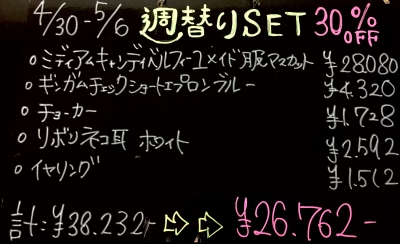 4/30-5/6 週替りSET 30% OFF
○ミディアムキャンディベルフィーユメイド服マスカット ¥28.080
○ギンガムチェックショートエプロンブルー ¥4.320
○チョーカー ¥1.728
○リボンネコ耳 ホワイト ¥2.592
○イヤリング ¥1.512
計:¥38.232- ⇨ ⇨ ¥26.762-